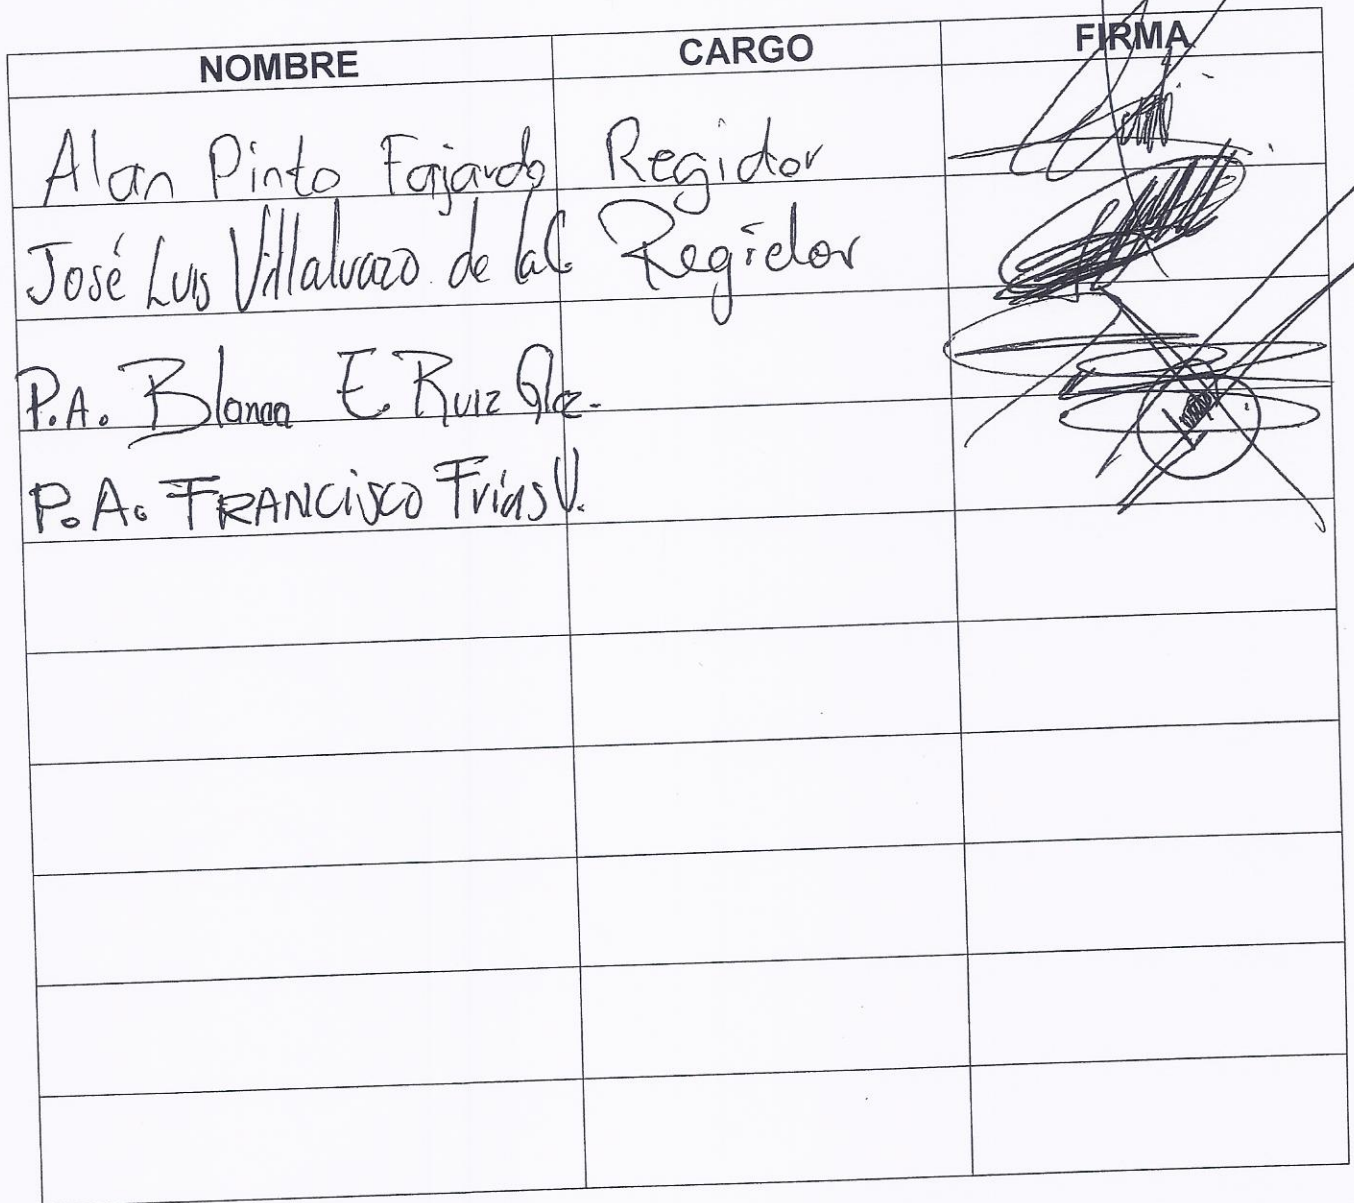 NOMBRE CARGO FIRMA
Alan Pinto Fajardo Regidor
José Luis Villalvazo de la C. Regidor
P.A. Blanca E. Ruiz Glz.
P.A. FRANCISCO Frías V.